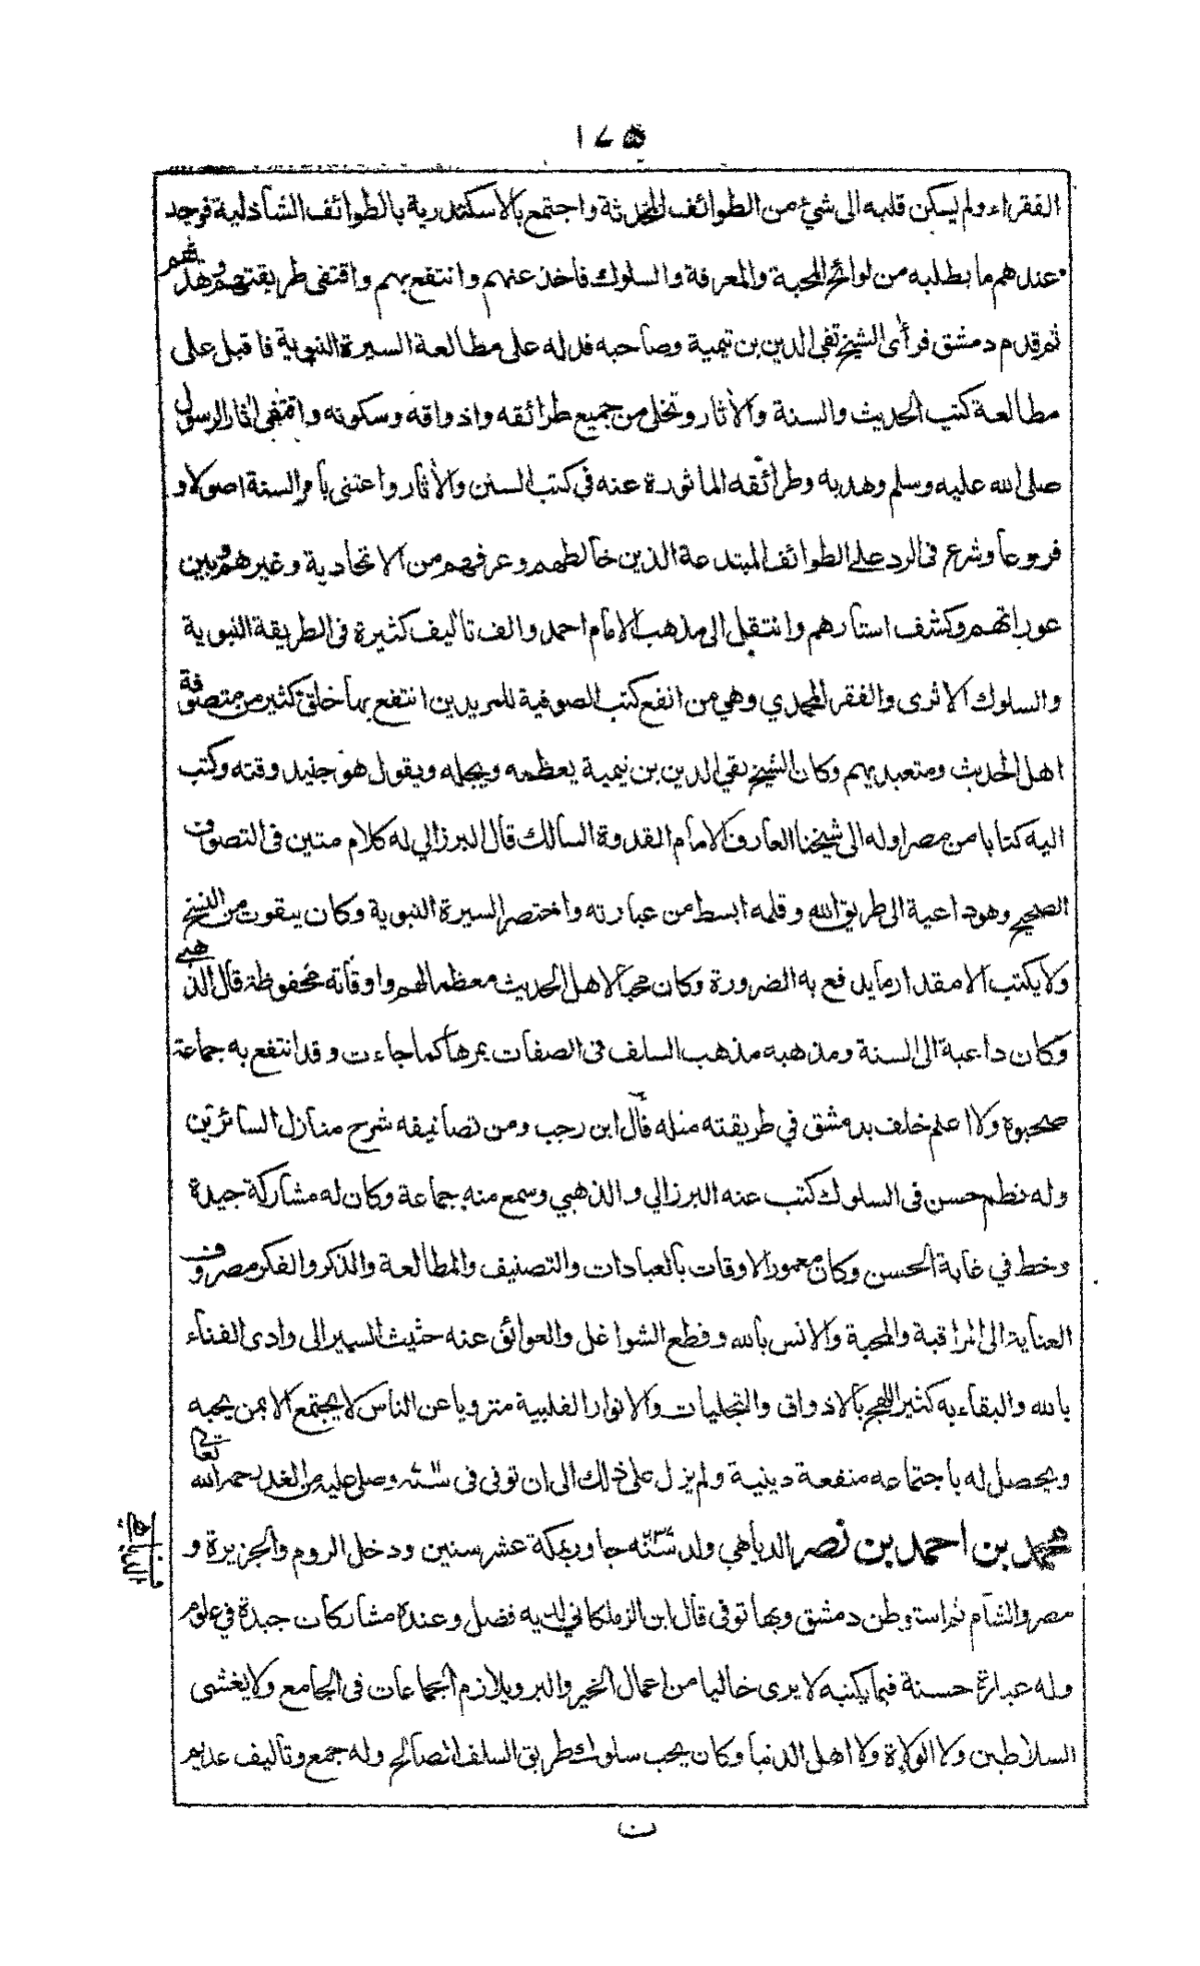 ١٧٥
الفقراء ولم يسكن قلبه الى شئ من الطوائف المحدثة واجتمع بالاسكندرية بالطوائف الشاذلية فوجد
عندهم ما يطلبه من لوائح المحبة والمعرفة والسلوك فاخذ عنهم وانتفع بهم واقتفى طريقتهم وهديهم
ثم قدم دمشق فرأى الشيخ تقي الدين بن تيمية وصاحبه فدله على مطالعة السيرة النبوية فاقبل على
مطالعة كتب الحديث والسنة والأثار وتخلى من جميع طرائقه واذواقه وسكونه واقتفى اثار الرسول
صلى الله عليه وسلم وهديه وطرائقه الماثورة عنه في كتب السنن والأثار واعتنى بامر السنة اصولا و
فروعا وشرع فى الرد على الطوائف المبتدعة الذين خالطهم وعرفهم من الاتحادية وغيرهم وبين
عوراتهم وكشف استارهم وانتقل الى مذهب الامام احمد والف تأليف كثيرة فى الطريقة النبوية
والسلوك الاثرى والفقر المحمدي وهي من انفع كتب الصوفية للمريدين انتفع بها خلق كثير من متصوفة
اهل الحديث ومتعبديهم وكان الشيخ تقي الدين بن تيمية يعظمه ويجله ويقول هو جنيد وقته وكتب
اليه كتابا من مصر اوله الى شيخنا العارف الامام القدوة السالك قال البرزالي له كلام متين فى التصوف
الصحيح وهو داعية الى طريق الله وقلمه ابسط من عبارته واختصر السيرة النبوية وكان يتقوت من النسخ
ولا يكتب الا مقدار ما يدفع به الضرورة وكان محبا لاهل الحديث معظما لهم واوقاته محفوظة قال الذهبي
وكان داعية الى السنة ومذهبه مذهب السلف فى الصفات يمرها كما جاءت وقد انتفع به جماعة
صحبوه ولا اعلم خلف بدمشق في طريقته مثله قال ابن رجب ومن تصانيفه شرح منازل السائرين
وله نظم حسن فى السلوك كتب عنه البرزالي والذهبي وسمع منه جماعة وكان له مشاركة جيدة
وخط في غاية الحسن وكان معمور الاوقات بالعبادات والتصنيف والمطالعة والذكر والفكر مصروف
العناية الى المراقبة والمحبة والانس بالله وقطع الشواغل والعوائق عنه حثيث السير الى وادى الفناء
بالله والبقاء به كثير اللهج بالاذواق والتجليات والانوار القلبية منزويا عن الناس لا يجتمع الا بمن يحبه
ويحصل له باجتماعه منفعة دينية ولم يزل على ذلك الى ان توفى فى وصلى عليه من الغد رحمه الله تعالى
محمد بن احمد بن نصر الدباهي ولد جاور بمكة عشر سنين ودخل الروم والجزيرة و
الدباهي
مصر والشام ثم استوطن دمشق وبها توفى قال ابن الزملكاني لديه فضل وعنده مشاركات جيدة في علوم
وله عبارة حسنة فيما يكتبه لا يرى خاليا من اعمال الخير والبر ويلازم الجماعات فى الجامع ولا يغشى
السلاطين ولا الولاة ولا اهل الدنيا وكان يحب سلوك طريق السلف الصالح وله جمع وتأليف عديم
ن